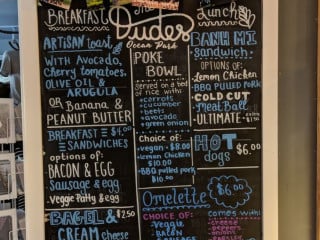 BREAKFAST
ARTISAN toast
WITH Avocado,
Cherry tomatoes,
OLIVE OIL &
ARUGULA
OR Banana &
PEANUT BUTTER
BREAKFAST $4.00
SANDWICHES
options of:
BACON & EGG
Sausage & egg
Veggie Patty & egg
BAGEL & $2.50
CREAM cheese
The
Dudes
Ocean Park
POKE
BOWL
served on a bed
of rice with
carrots
cucumber
beets
avocado
green onion
Choice of:
vegan $8.00
lemon chicken
$10.00
BBQ pulled pork
$10.00
Omelette $6.00
CHOICE OF:
Veggie
BACON
SAUSAGE
comes with:
cheese
peppers
onions
Lunch
BANH MI
sandwich
OPTIONS:
Lemon Chicken
BBQ PULLED Pork
COLD CUT
MeatBall
ULTIMATE
HOT
dogs $6.00